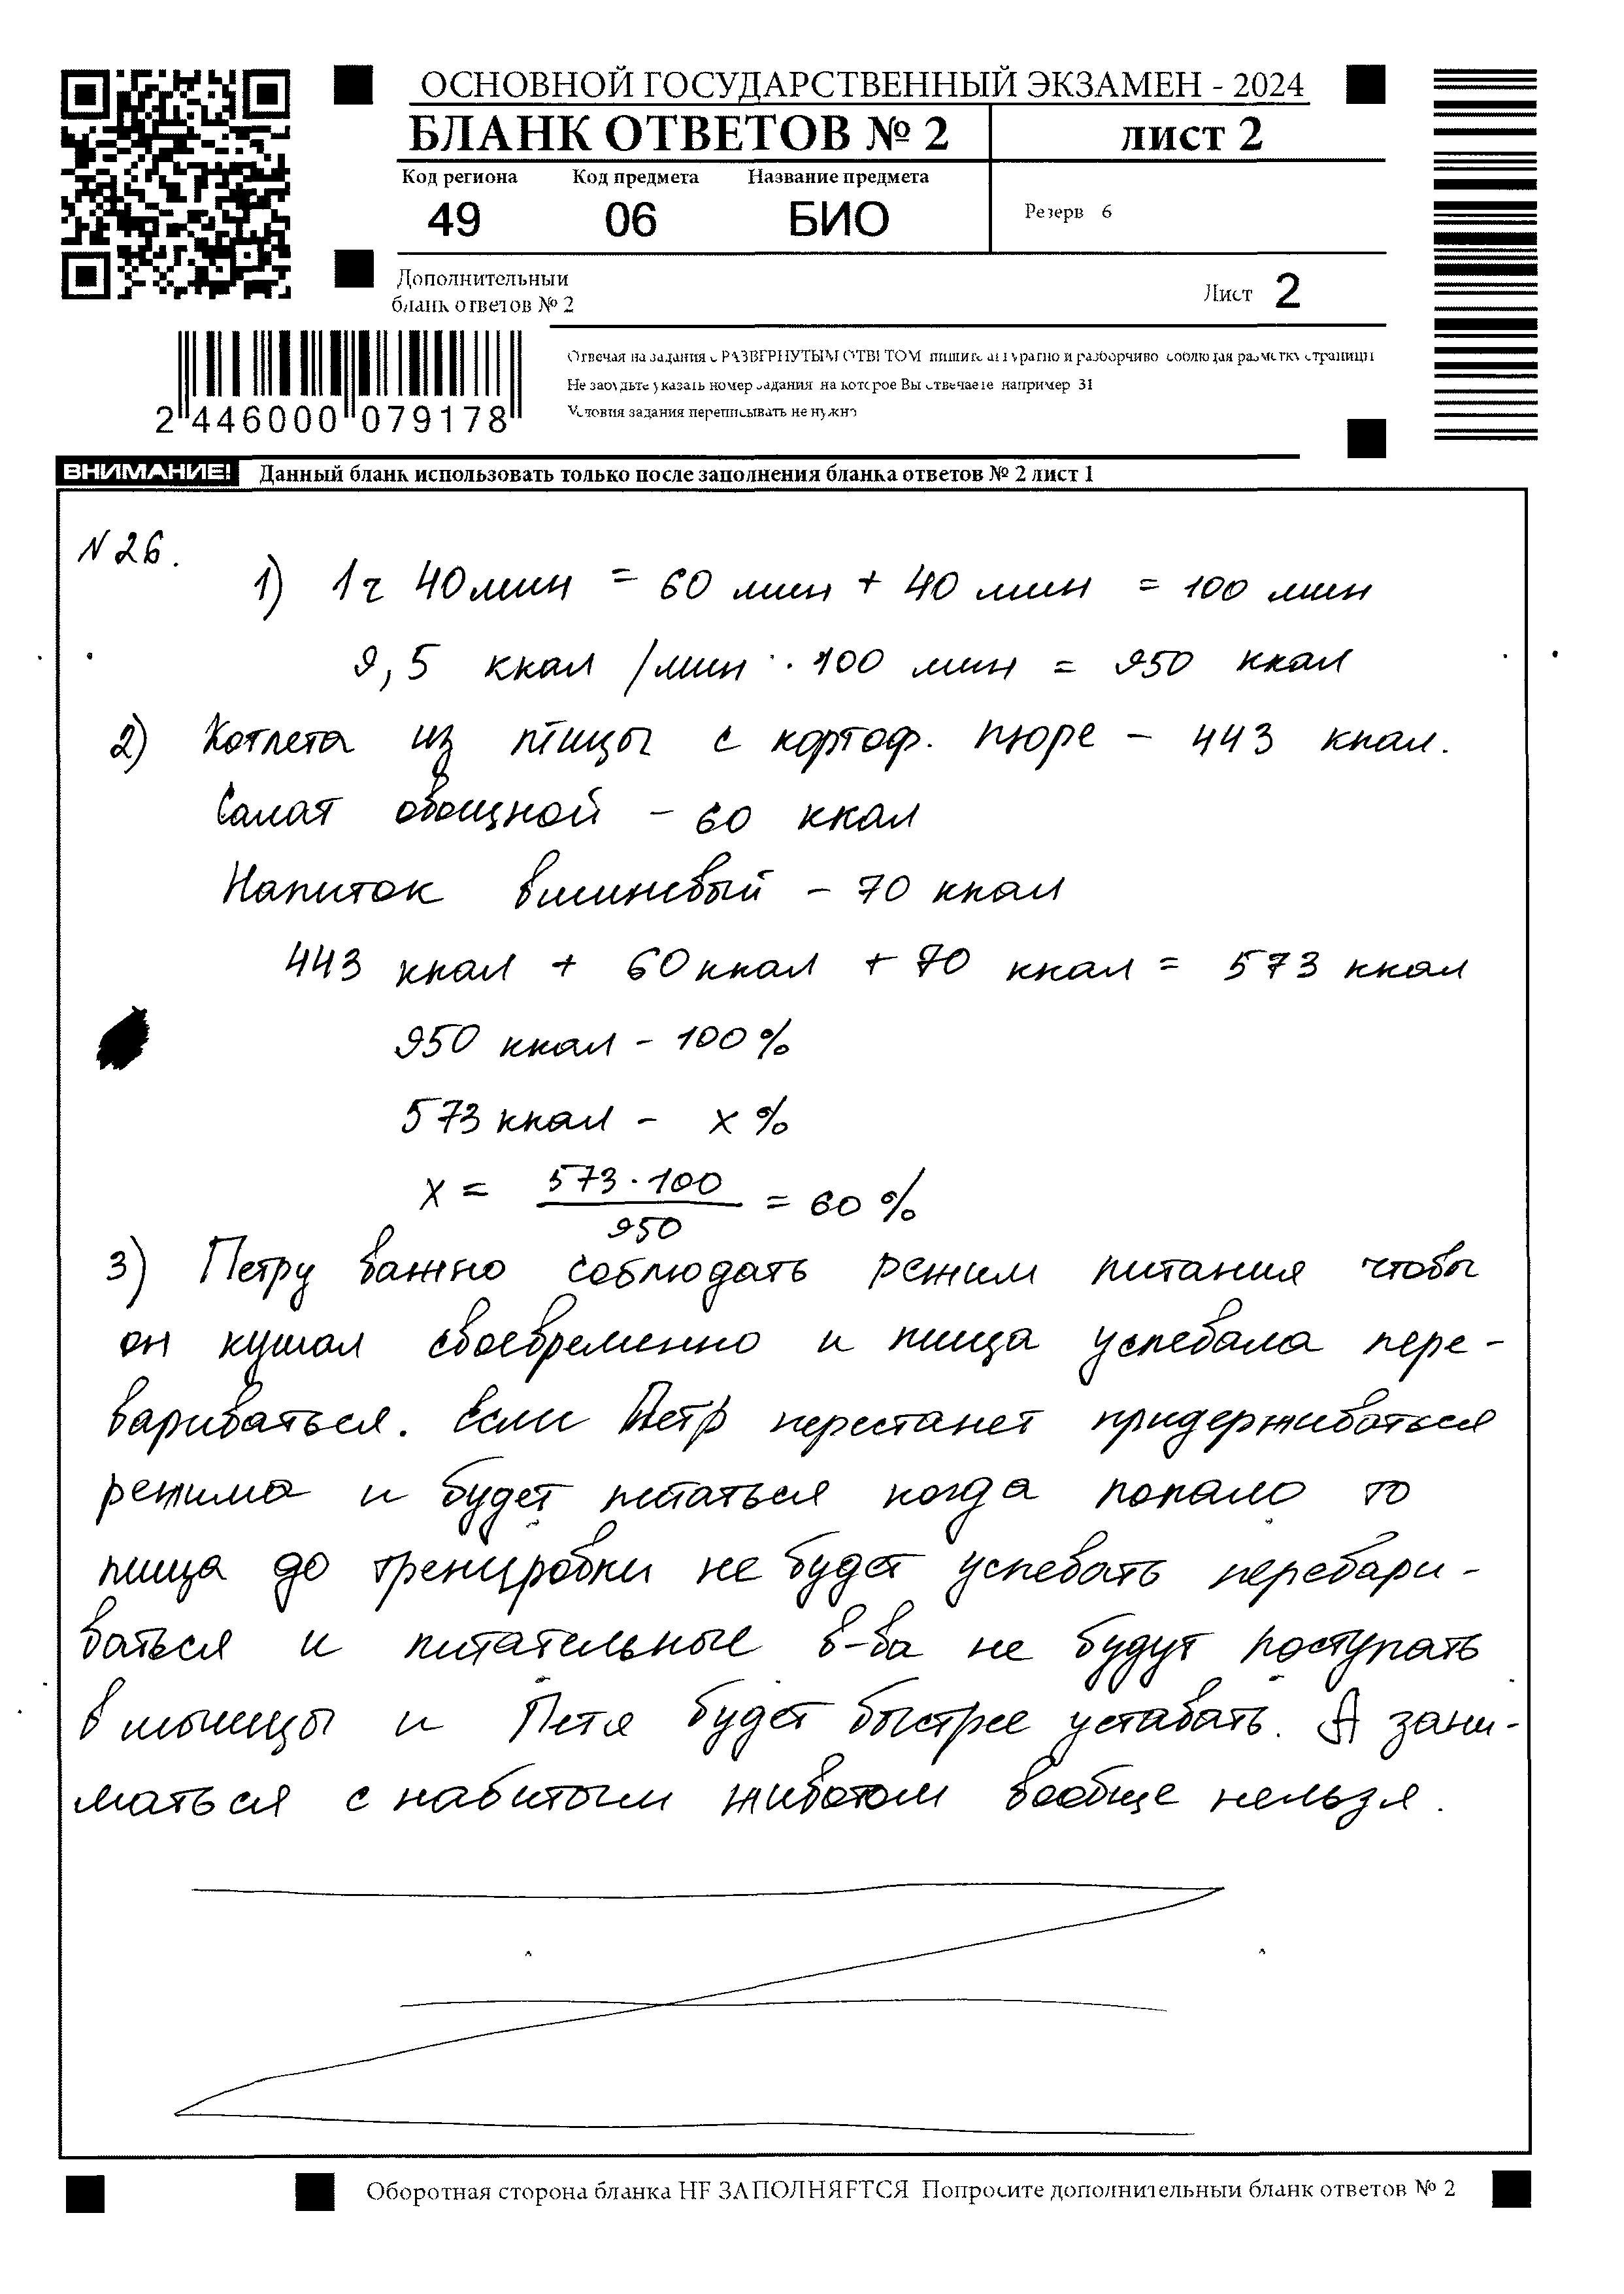 ОСНОВНОЙ ГОСУДАРСТВЕННЫЙ ЭКЗАМЕН - 2024
БЛАНК ОТВЕТОВ № 2 лист 2
Код региона Код предмета Название предмета
49 06 БИО
Резерв 6
Дополнительный
бланк ответов № 2
Лист 2
Отвечая на задания с РАЗВЕРНУТЫМ ОТВЕТОМ пишите аккуратно и разборчиво соблюдая разметку страницы
Не забудьте указать номер задания на которое Вы отвечаете например 31
Условия задания переписывать не нужно
2 446000 079178
ВНИМАНИЕ! Данный бланк использовать только после заполнения бланка ответов № 2 лист 1
N 26.
1) 1 ч 40 мин = 60 мин + 40 мин = 100 мин
9,5 ккал /мин · 100 мин = 950 ккал
2) Котлета из птицы с картоф. пюре – 443 ккал.
Салат овощной – 60 ккал
Напиток вишневый – 70 ккал
443 ккал + 60 ккал + 70 ккал = 573 ккал
950 ккал – 100 %
573 ккал – x %
x = 573 · 100 / 950 = 60 %
3) Петру важно соблюдать режим питания чтобы
он кушал своевременно и пища успевала пере-
вариваться. Если Петр перестанет придерживаться
режима и будет питаться когда попало то
пища до тренировки не будет успевать перевари-
ваться и питательные в-ва не будут поступать
в мышцы и Петя будет быстрее уставать. А зани-
маться с набитым животом вообще нельзя.
Оборотная сторона бланка НЕ ЗАПОЛНЯЕТСЯ Попросите дополнительный бланк ответов № 2